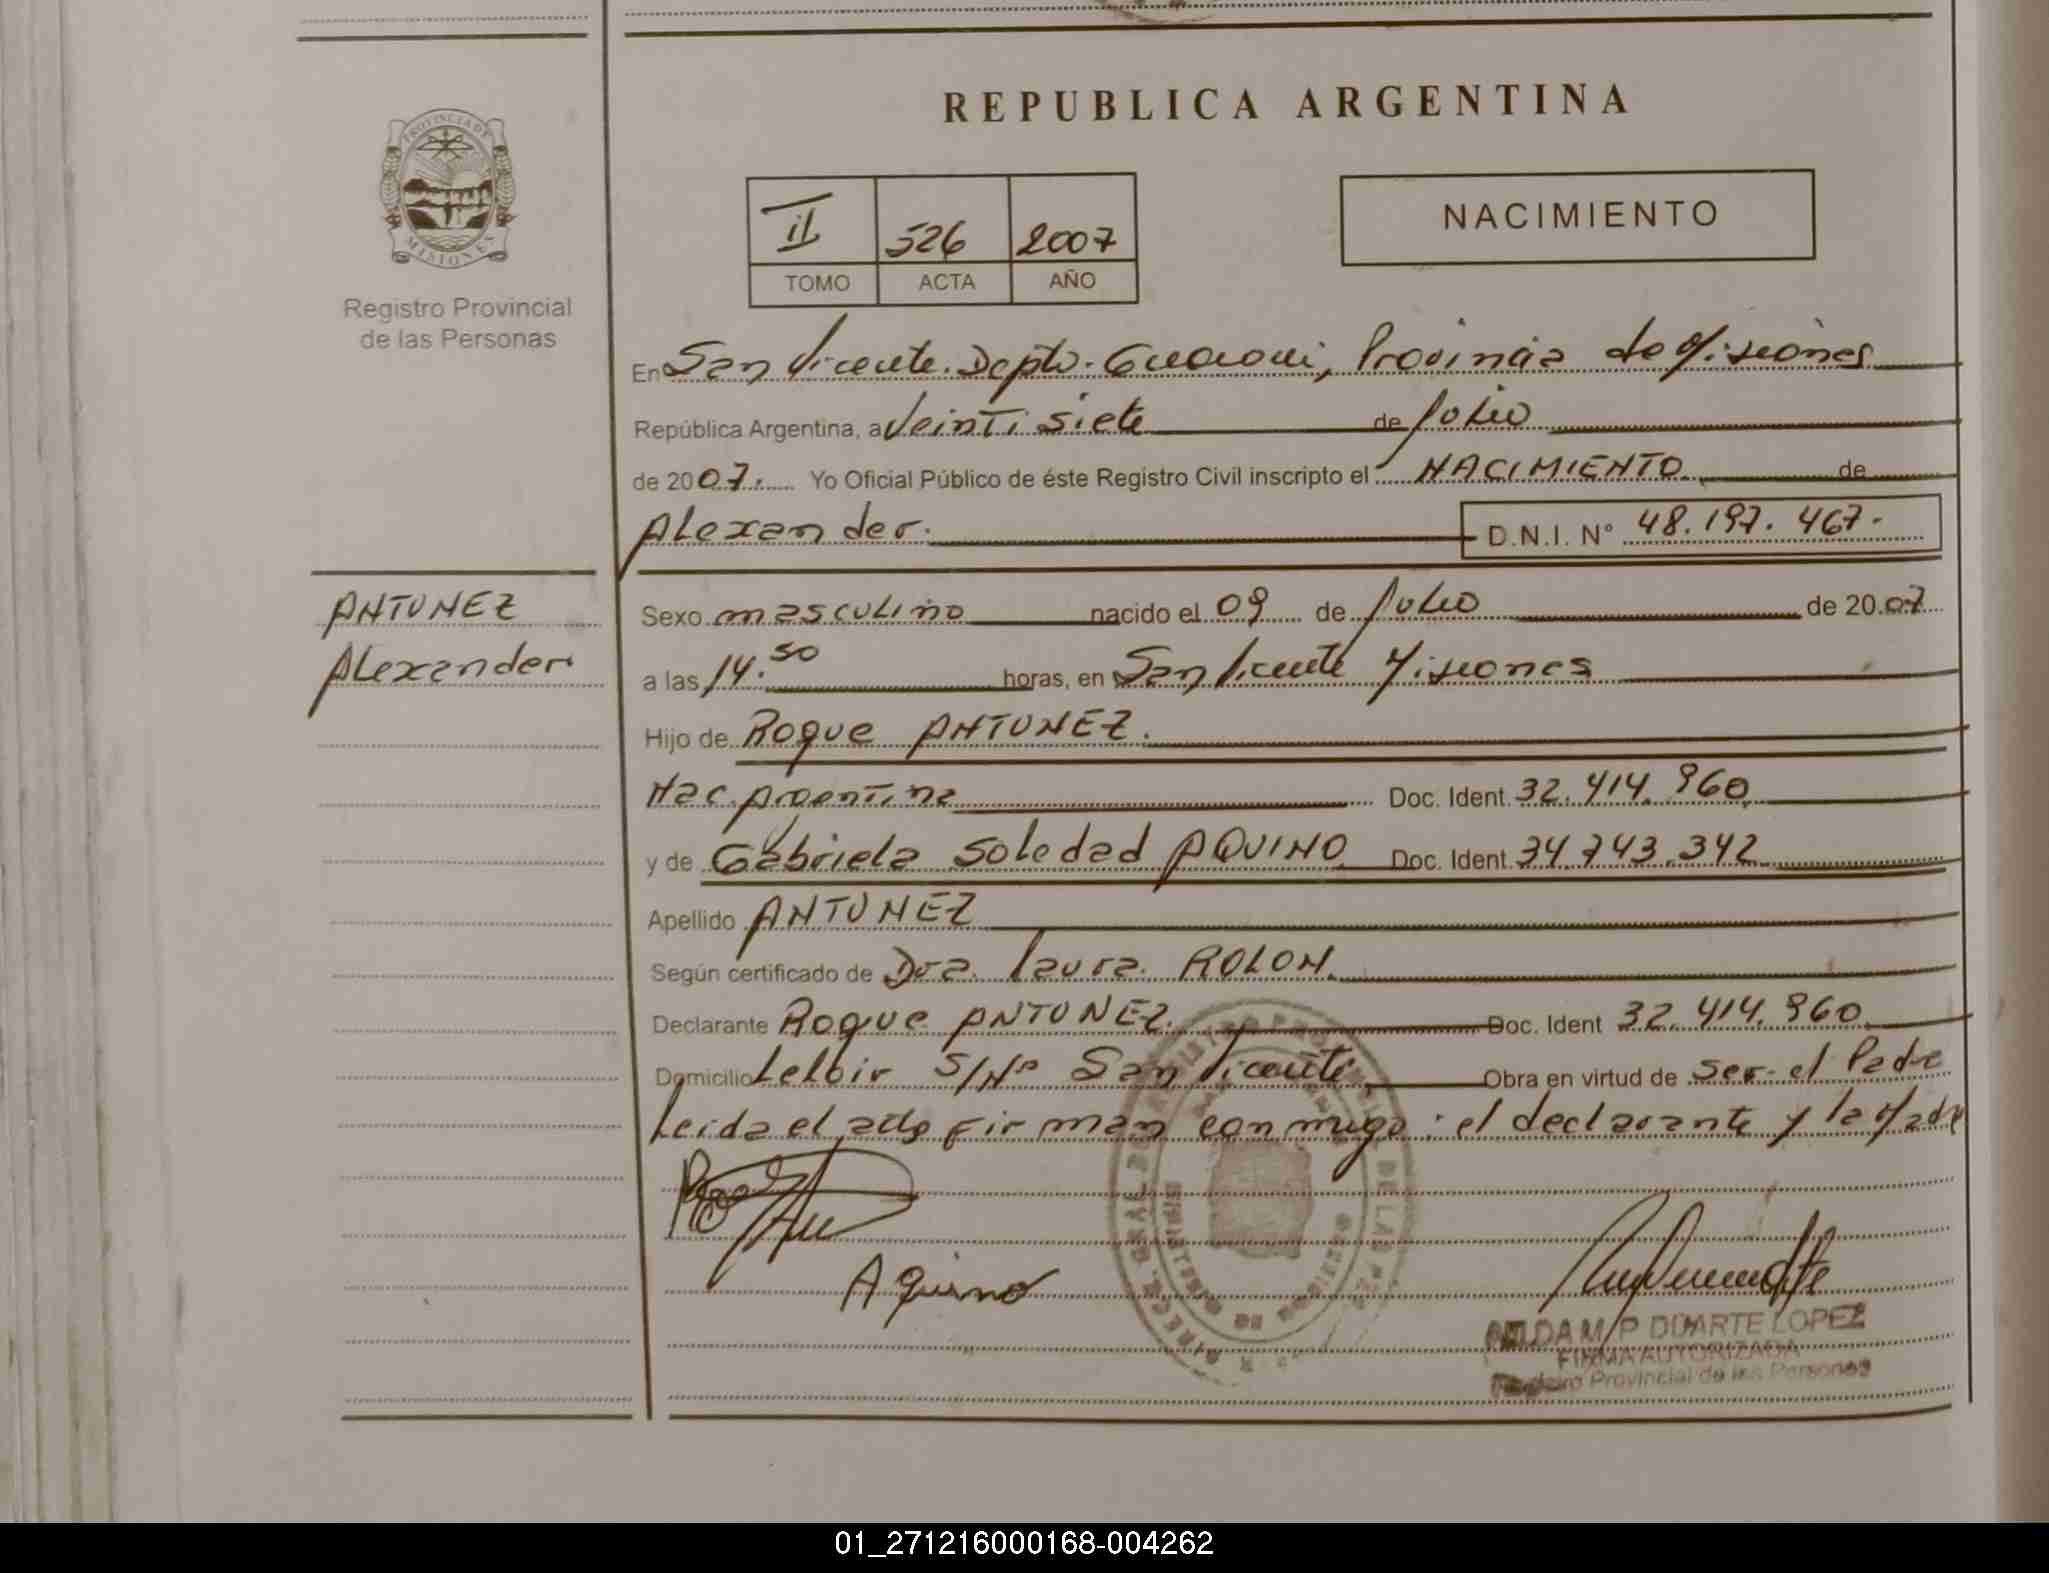 REPUBLICA ARGENTINA
PROVINCIA DE
MISIONES
Registro Provincial
de las Personas
II 526 2007
TOMO ACTA AÑO
NACIMIENTO
En San Vicente. Depto. Guarani, Provincia de Misiones
República Argentina, a Veinti siete de Julio
de 2007. Yo Oficial Público de éste Registro Civil inscripto el NACIMIENTO de
Alexander. D.N.I. N° 48.197.467.
ANTUNEZ
Alexander
Sexo masculino nacido el 09 de Julio de 2007
a las 14.50 horas, en San Vicente Misiones
Hijo de Roque ANTUNEZ.
Nac. Argentina Doc. Ident. 32.414.960
y de Gabriela Soledad AQUINO Doc. Ident. 34.743.342
Apellido ANTUNEZ
Según certificado de Dra. Laura ROLON.
Declarante Roque ANTUNEZ. Doc. Ident 32.414.960
Domicilio Leloir S/Nº San Vicente Obra en virtud de ser el Padre
Leida el acto firman conmigo: el declarante y la Madre
Aquino
M/P DUARTE LOPEZ
FIRMA AUTORIZADA
Registro Provincial de las Personas
01_271216000168-004262